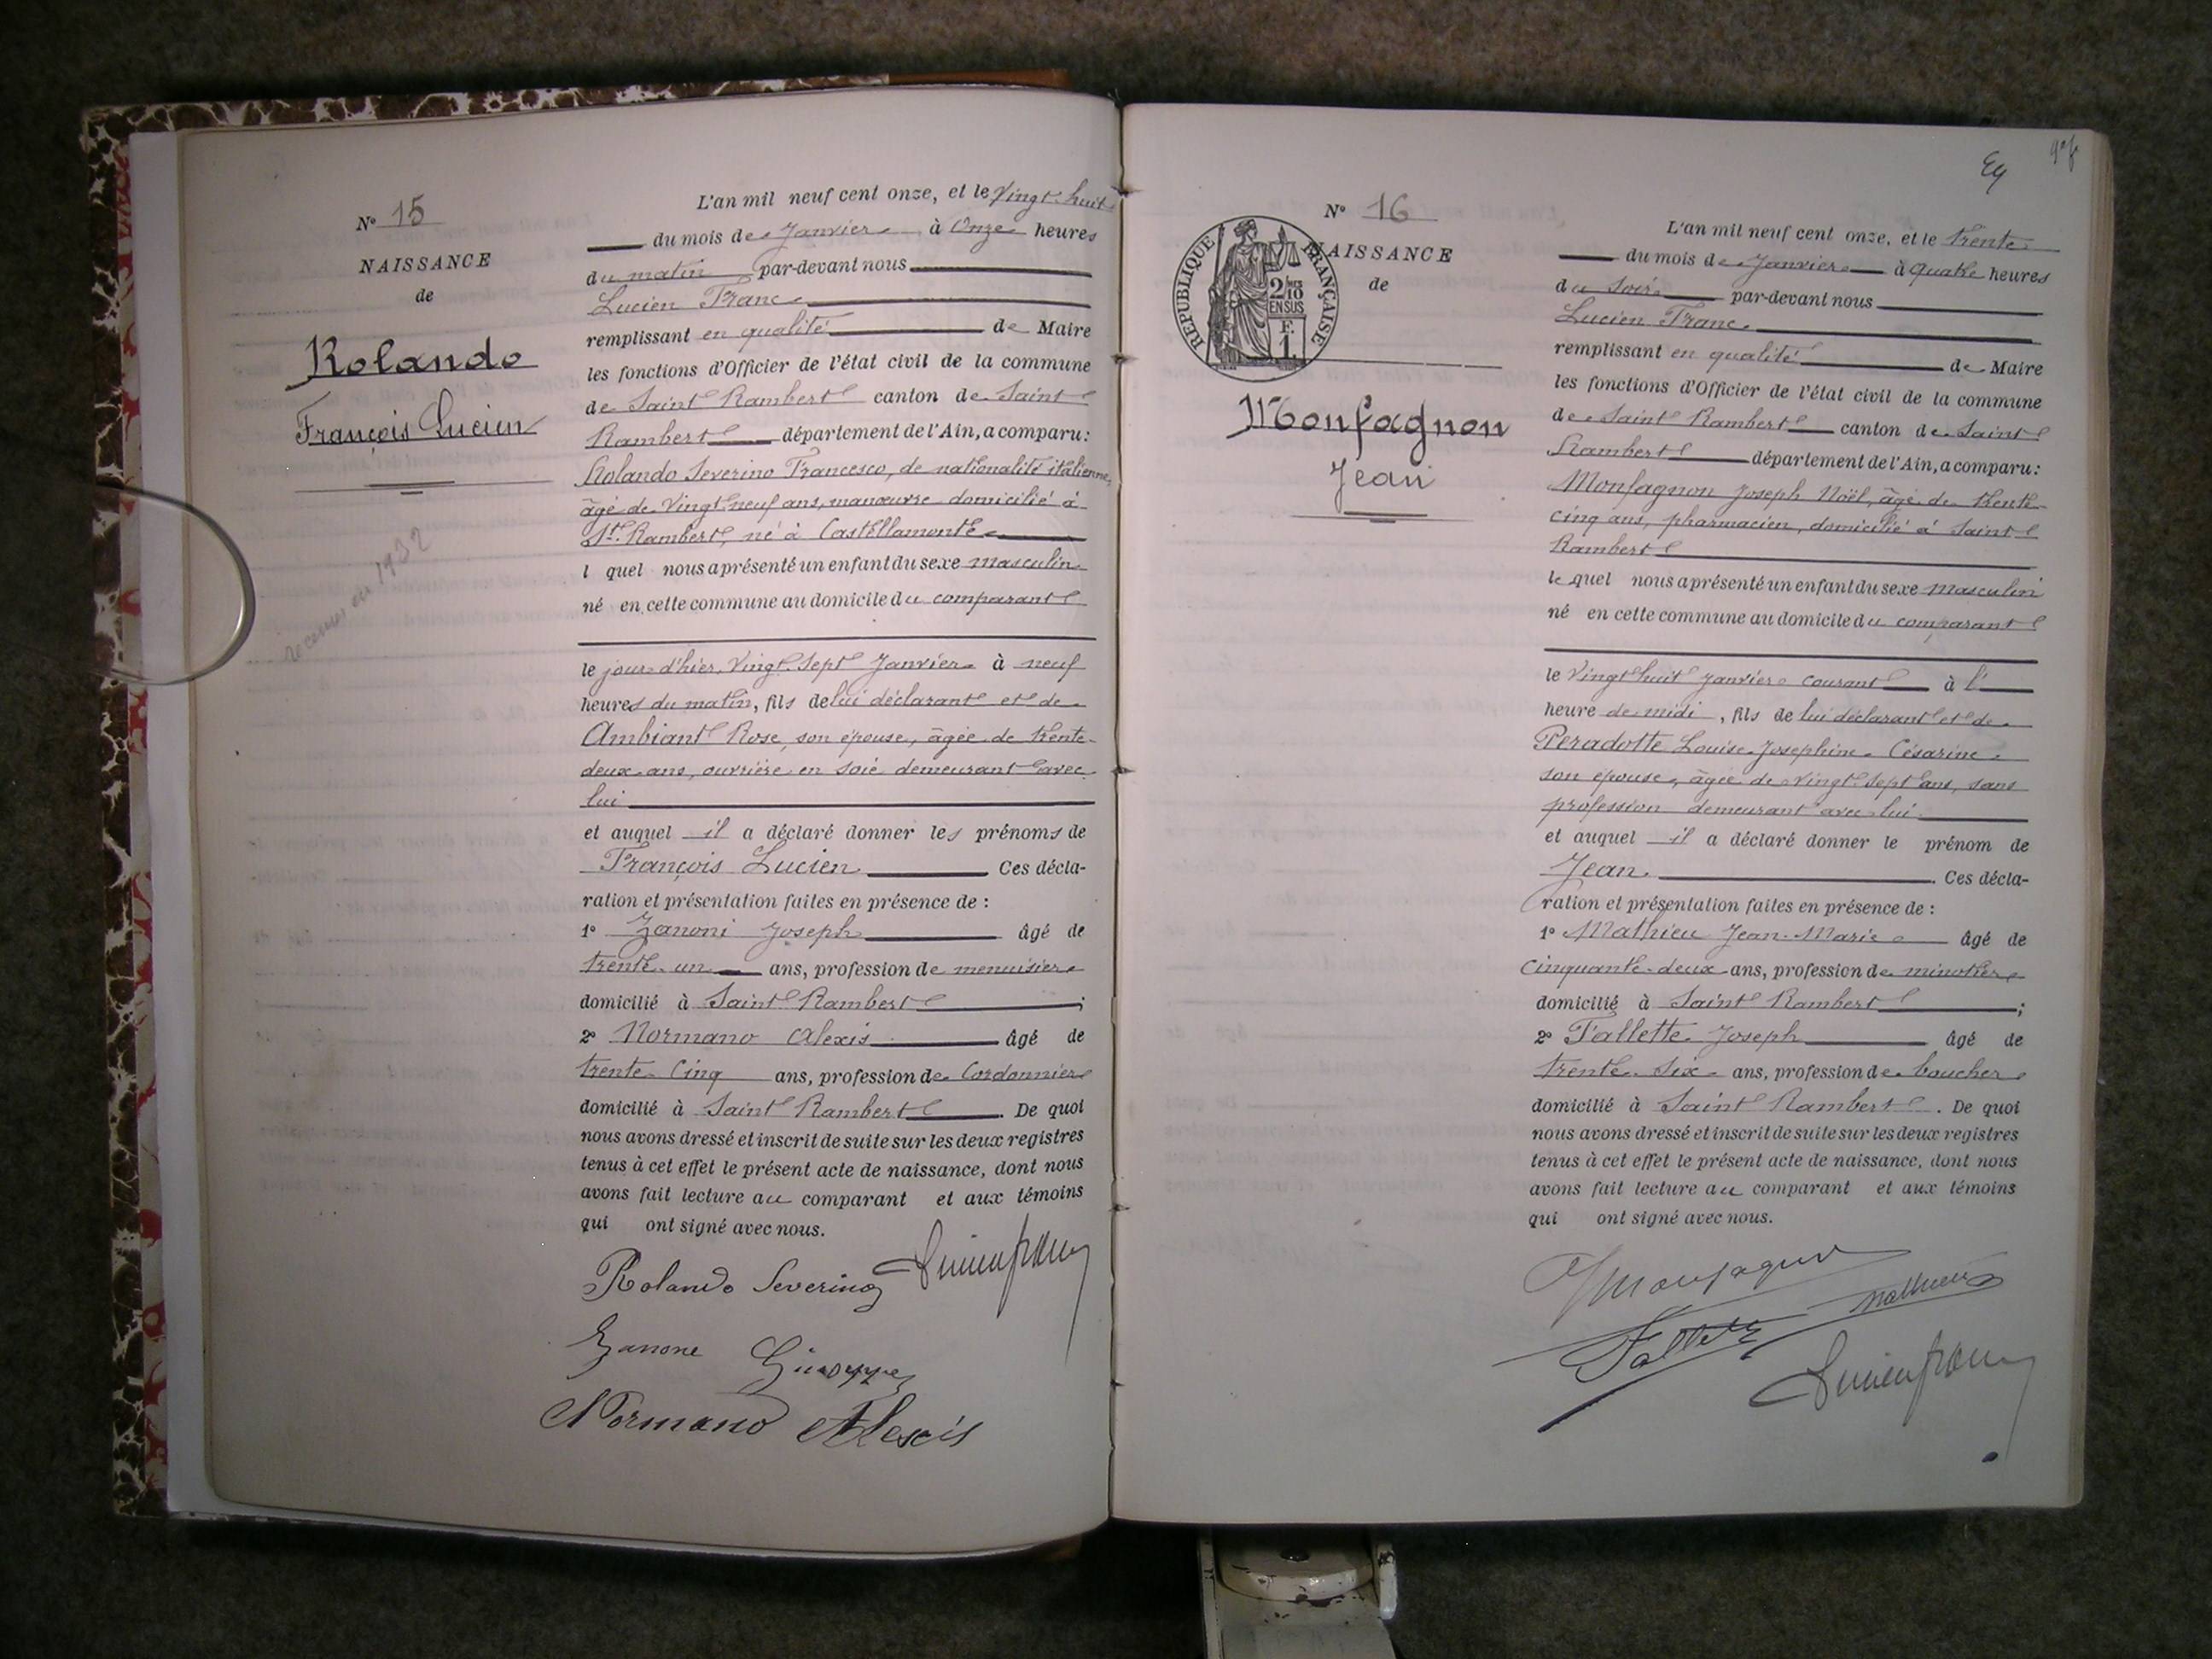 N° 15
NAISSANCE
de
Rolando
François Lucien
recensé en 1932
L'an mil neuf cent onze, et le Vingt-huit
du mois de Janvier à Onze heures
du matin par-devant nous
Lucien Franc
remplissant en qualité de Maire
les fonctions d'Officier de l'état civil de la commune
de Saint Rambert canton de Saint
Rambert département de l'Ain, a comparu :
Rolando Severino Francesco, de nationalité italienne,
âgé de Vingt neuf ans, manœuvre domicilié à
St. Rambert, né à Castellamonte
l quel nous a présenté un enfant du sexe masculin
né en cette commune au domicile du comparant
le jour d'hier, Vingt-sept Janvier à neuf
heures du matin, fils de lui déclarant et de
Ambiant Rose, son épouse, âgée de trente-
deux ans, ouvrière en soie demeurant avec
lui
et auquel il a déclaré donner les prénoms de
François Lucien Ces décla-
ration et présentation faites en présence de :
1° Zanoni Joseph âgé de
trente un ans, profession de menuisier
domicilié à Saint Rambert ;
2° Normano Alexis âgé de
trente-Cinq ans, profession de Cordonnier
domicilié à Saint Rambert. De quoi
nous avons dressé et inscrit de suite sur les deux registres
tenus à cet effet le présent acte de naissance, dont nous
avons fait lecture au comparant et aux témoins
qui ont signé avec nous.
Rolando Severino Lucien Franc
Zanone Giuseppe
Normano Alexis
N° 16
NAISSANCE
de
REPUBLIQUE FRANÇAISE
2/10 EN SUS
F. 1
Monfagnon
Jean
L'an mil neuf cent onze, et le trente
du mois de Janvier à quatre heures
du soir par-devant nous
Lucien Franc
remplissant en qualité de Maire
les fonctions d'Officier de l'état civil de la commune
de Saint Rambert canton de Saint
Rambert département de l'Ain, a comparu :
Monfagnon Joseph Noël, âgé de trente-
cinq ans, pharmacien, domicilié à Saint
Rambert
le quel nous a présenté un enfant du sexe masculin
né en cette commune au domicile du comparant
le Vingt huit janvier courant à l'
heure de midi, fils de lui déclarant et de
Peradotte Louise Josephine Césarine
son épouse, âgée de vingt-sept ans, sans
profession demeurant avec lui
et auquel il a déclaré donner le prénom de
Jean. Ces décla-
ration et présentation faites en présence de :
1° Mathieu Jean-Marie âgé de
Cinquante-deux ans, profession de minotier
domicilié à Saint Rambert ;
2° Fallette Joseph âgé de
trente-six ans, profession de boucher
domicilié à Saint Rambert. De quoi
nous avons dressé et inscrit de suite sur les deux registres
tenus à cet effet le présent acte de naissance, dont nous
avons fait lecture au comparant et aux témoins
qui ont signé avec nous.
Monfagnon
Mathieu
Lucien Franc